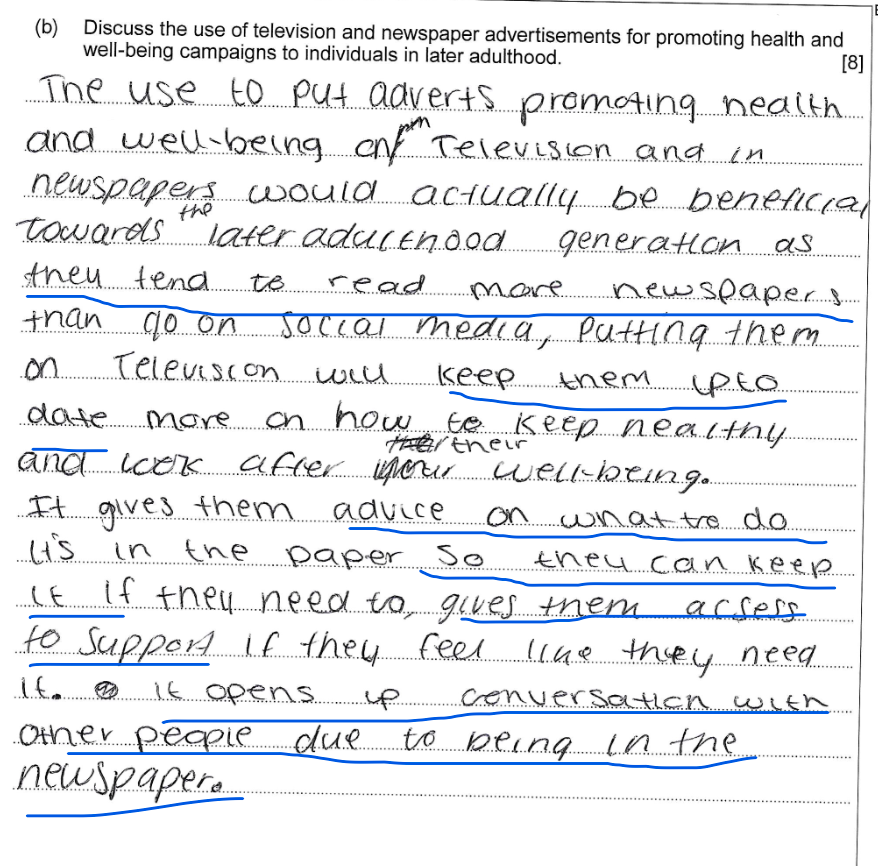 (b) Discuss the use of television and newspaper advertisements for promoting health and
well-being campaigns to individuals in later adulthood.
[8]
The use to put adverts promoting health
and well-being on Television and in
newspapers would actually be beneficial
towards the later adulthood generation as
they tend to read more newspapers
than go on social media, putting them
on Television will keep them up to
date more on how to keep healthy
and look after their well-being.
It gives them advice on what to do
it's in the paper so they can keep
it if they need to, gives them access
to support if they feel like they need
it. it opens up conversation with
other people due to being in the
newspaper.